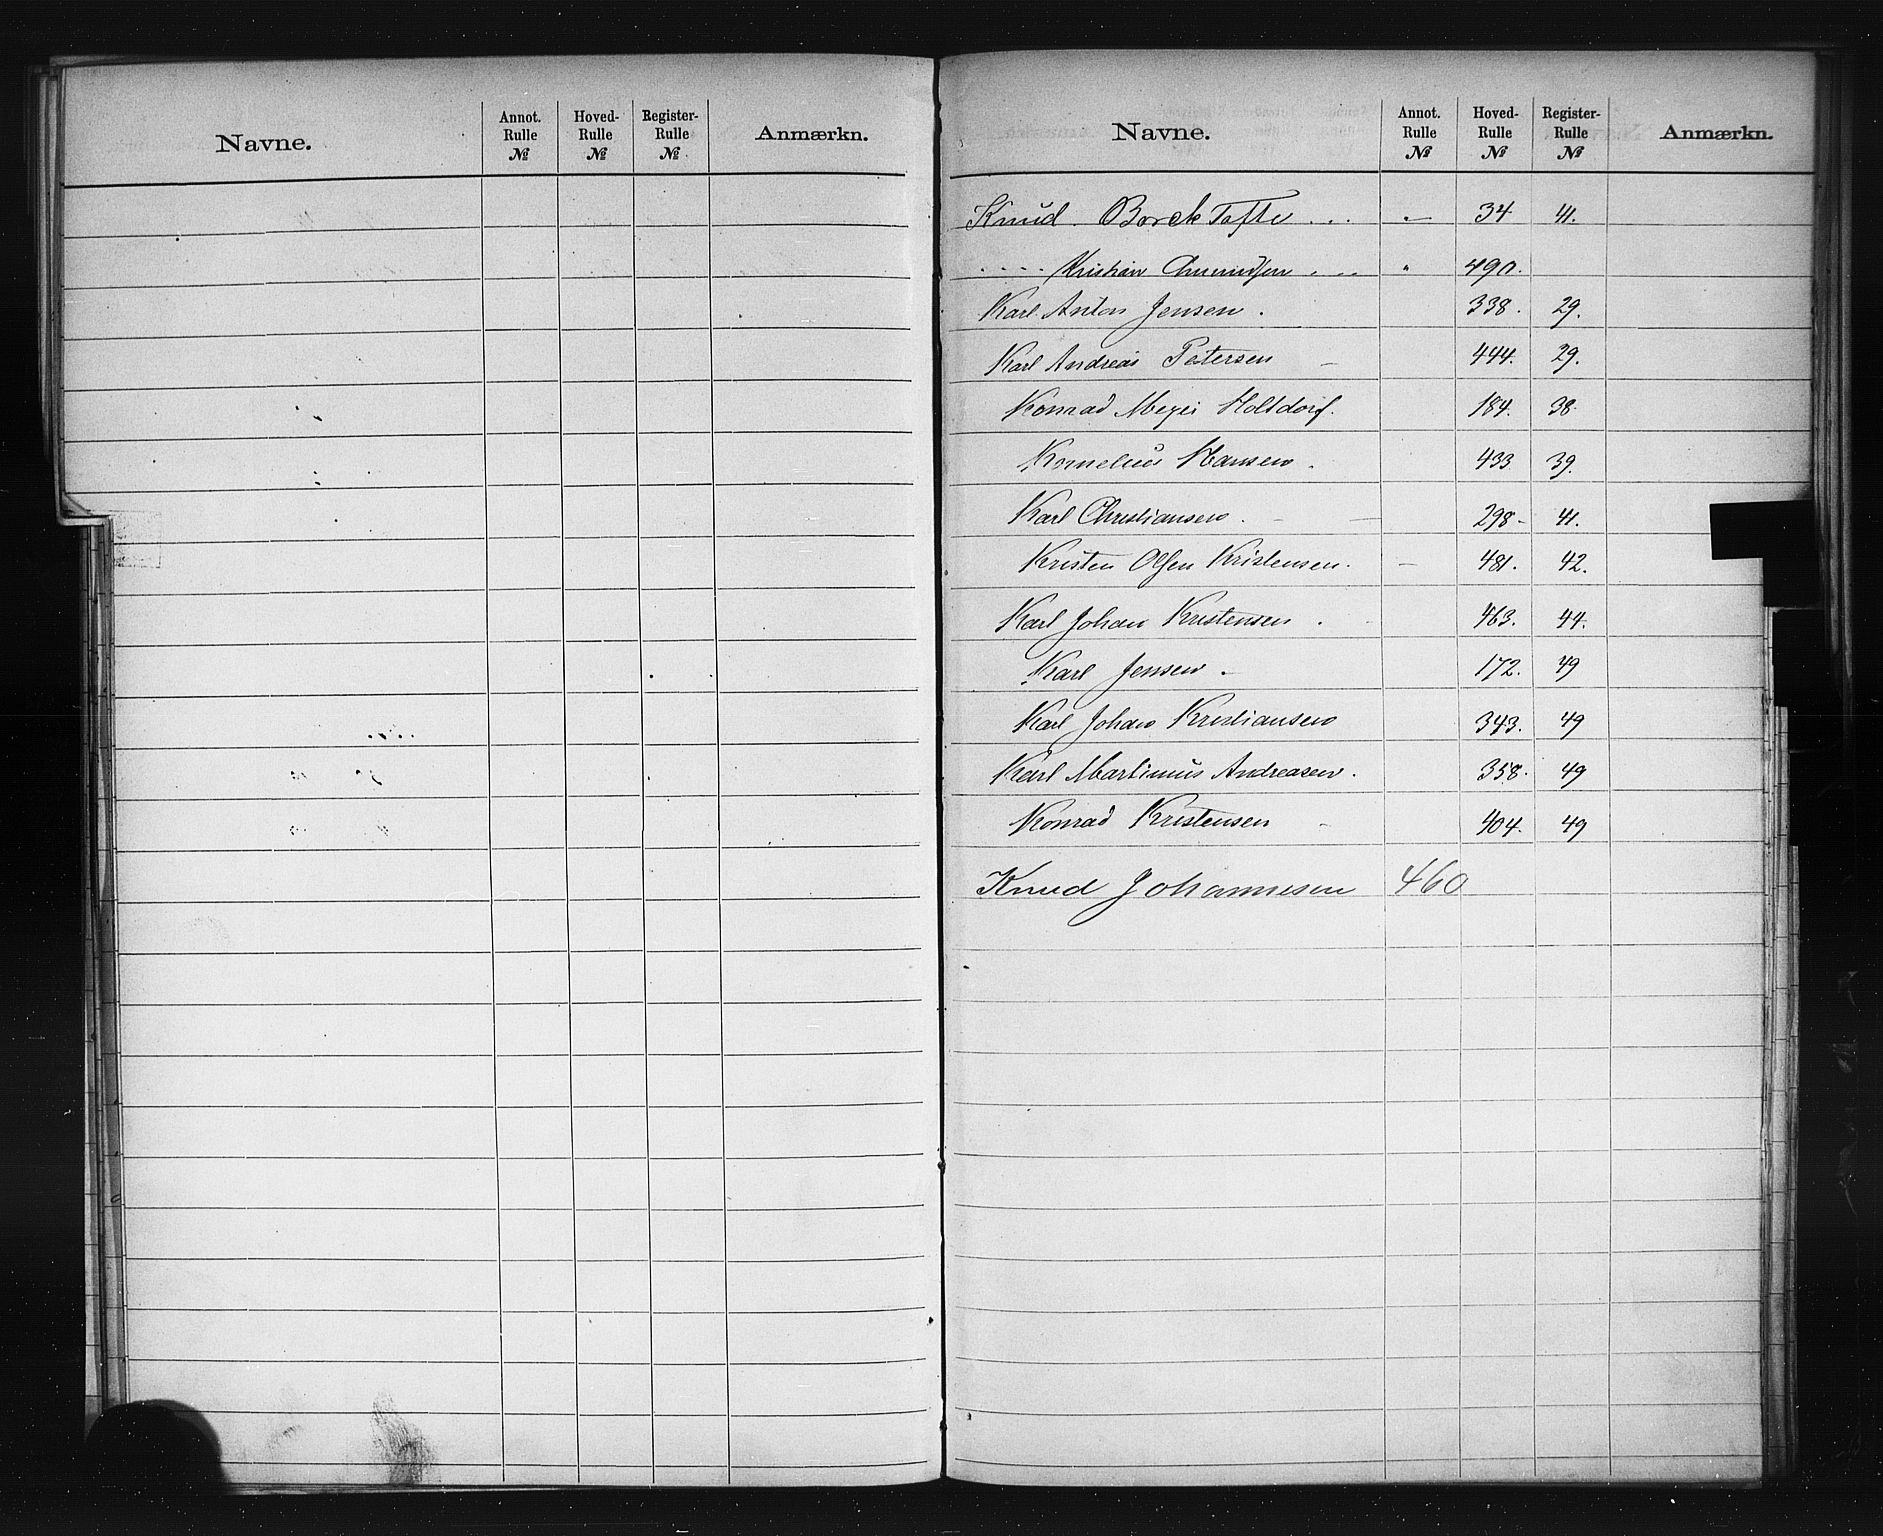 Navne. Annot. Rulle № Hoved- Rulle № Register- Rulle № Anmærkn.
Navne. Annot. Rulle № Hoved- Rulle № Register- Rulle № Anmærkn.
Knud . Borck Tofte . . . „— 34 41.
. . . . Kristian Amundsen . . . . „ 490.
Karl Anton Jensen . 338. 29.
Karl Andreas Petersen — 444. 29.
Konrad Meyer Holtdorf. 184. 38.
Kornelius Hansen . 433 39.
Karl Christiansen . — — 298- 41.
Kristen Olsen Kristensen. — 481. 42.
Karl Johan Kristensen . 463. 44.
Karl Jensen . 172. 49
Karl Johan Kristiansen 343. 49
Karl Martinius Andreasen . 358. 49
Konrad Kristensen — 404. 49
Knud Johannesen 460